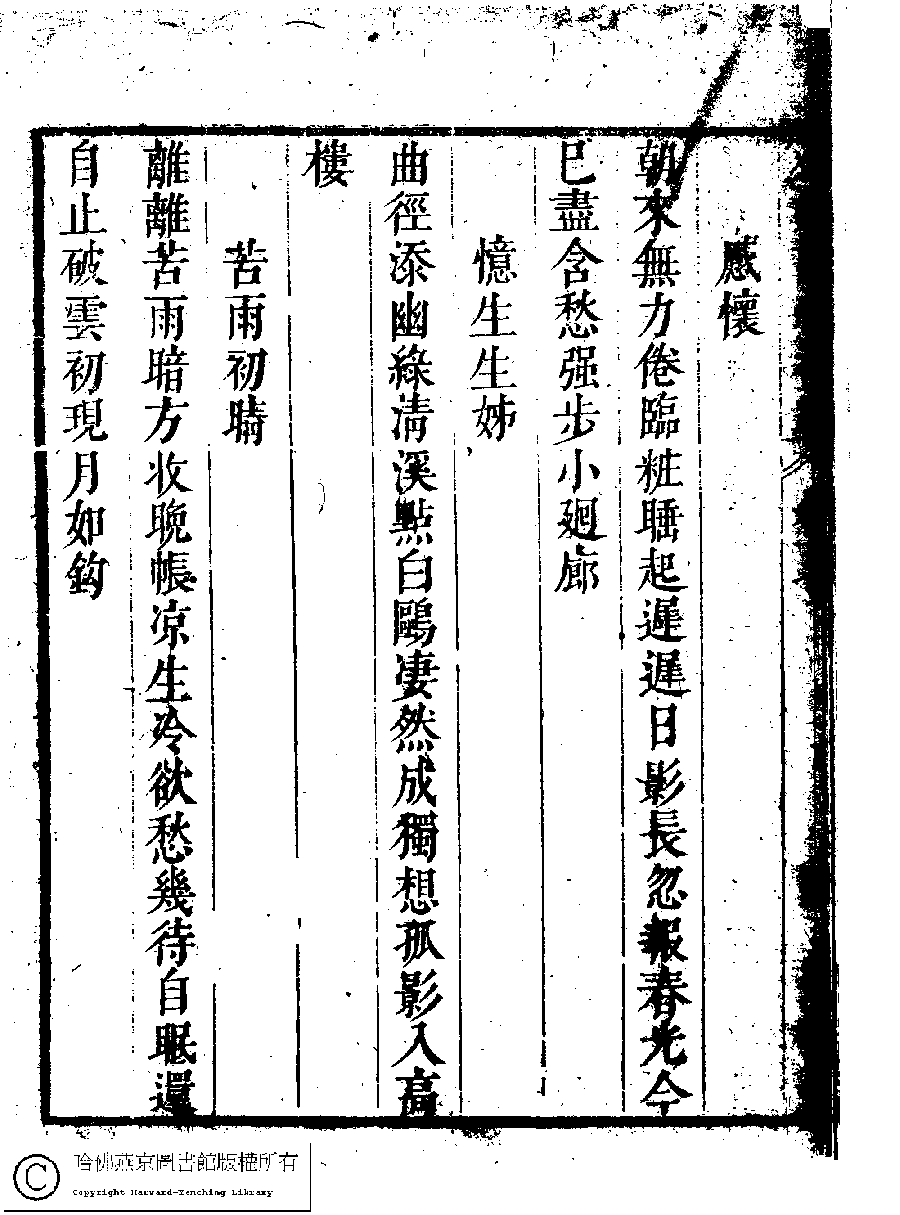 感懷
朝來無力倦臨粧睡起遲遲日影長忽報春光今
已盡含愁强步小廻廊
憶生生姊
曲徑添幽綠清溪點白鷗凄然成獨想孤影入高
樓
苦雨初晴
離離苦雨暗方收晚帳凉生冷欲愁幾待自眠還
自止破雲初現月如鈎
哈佛燕京圖書館版權所有
Copyright Harvard-Yenching Library